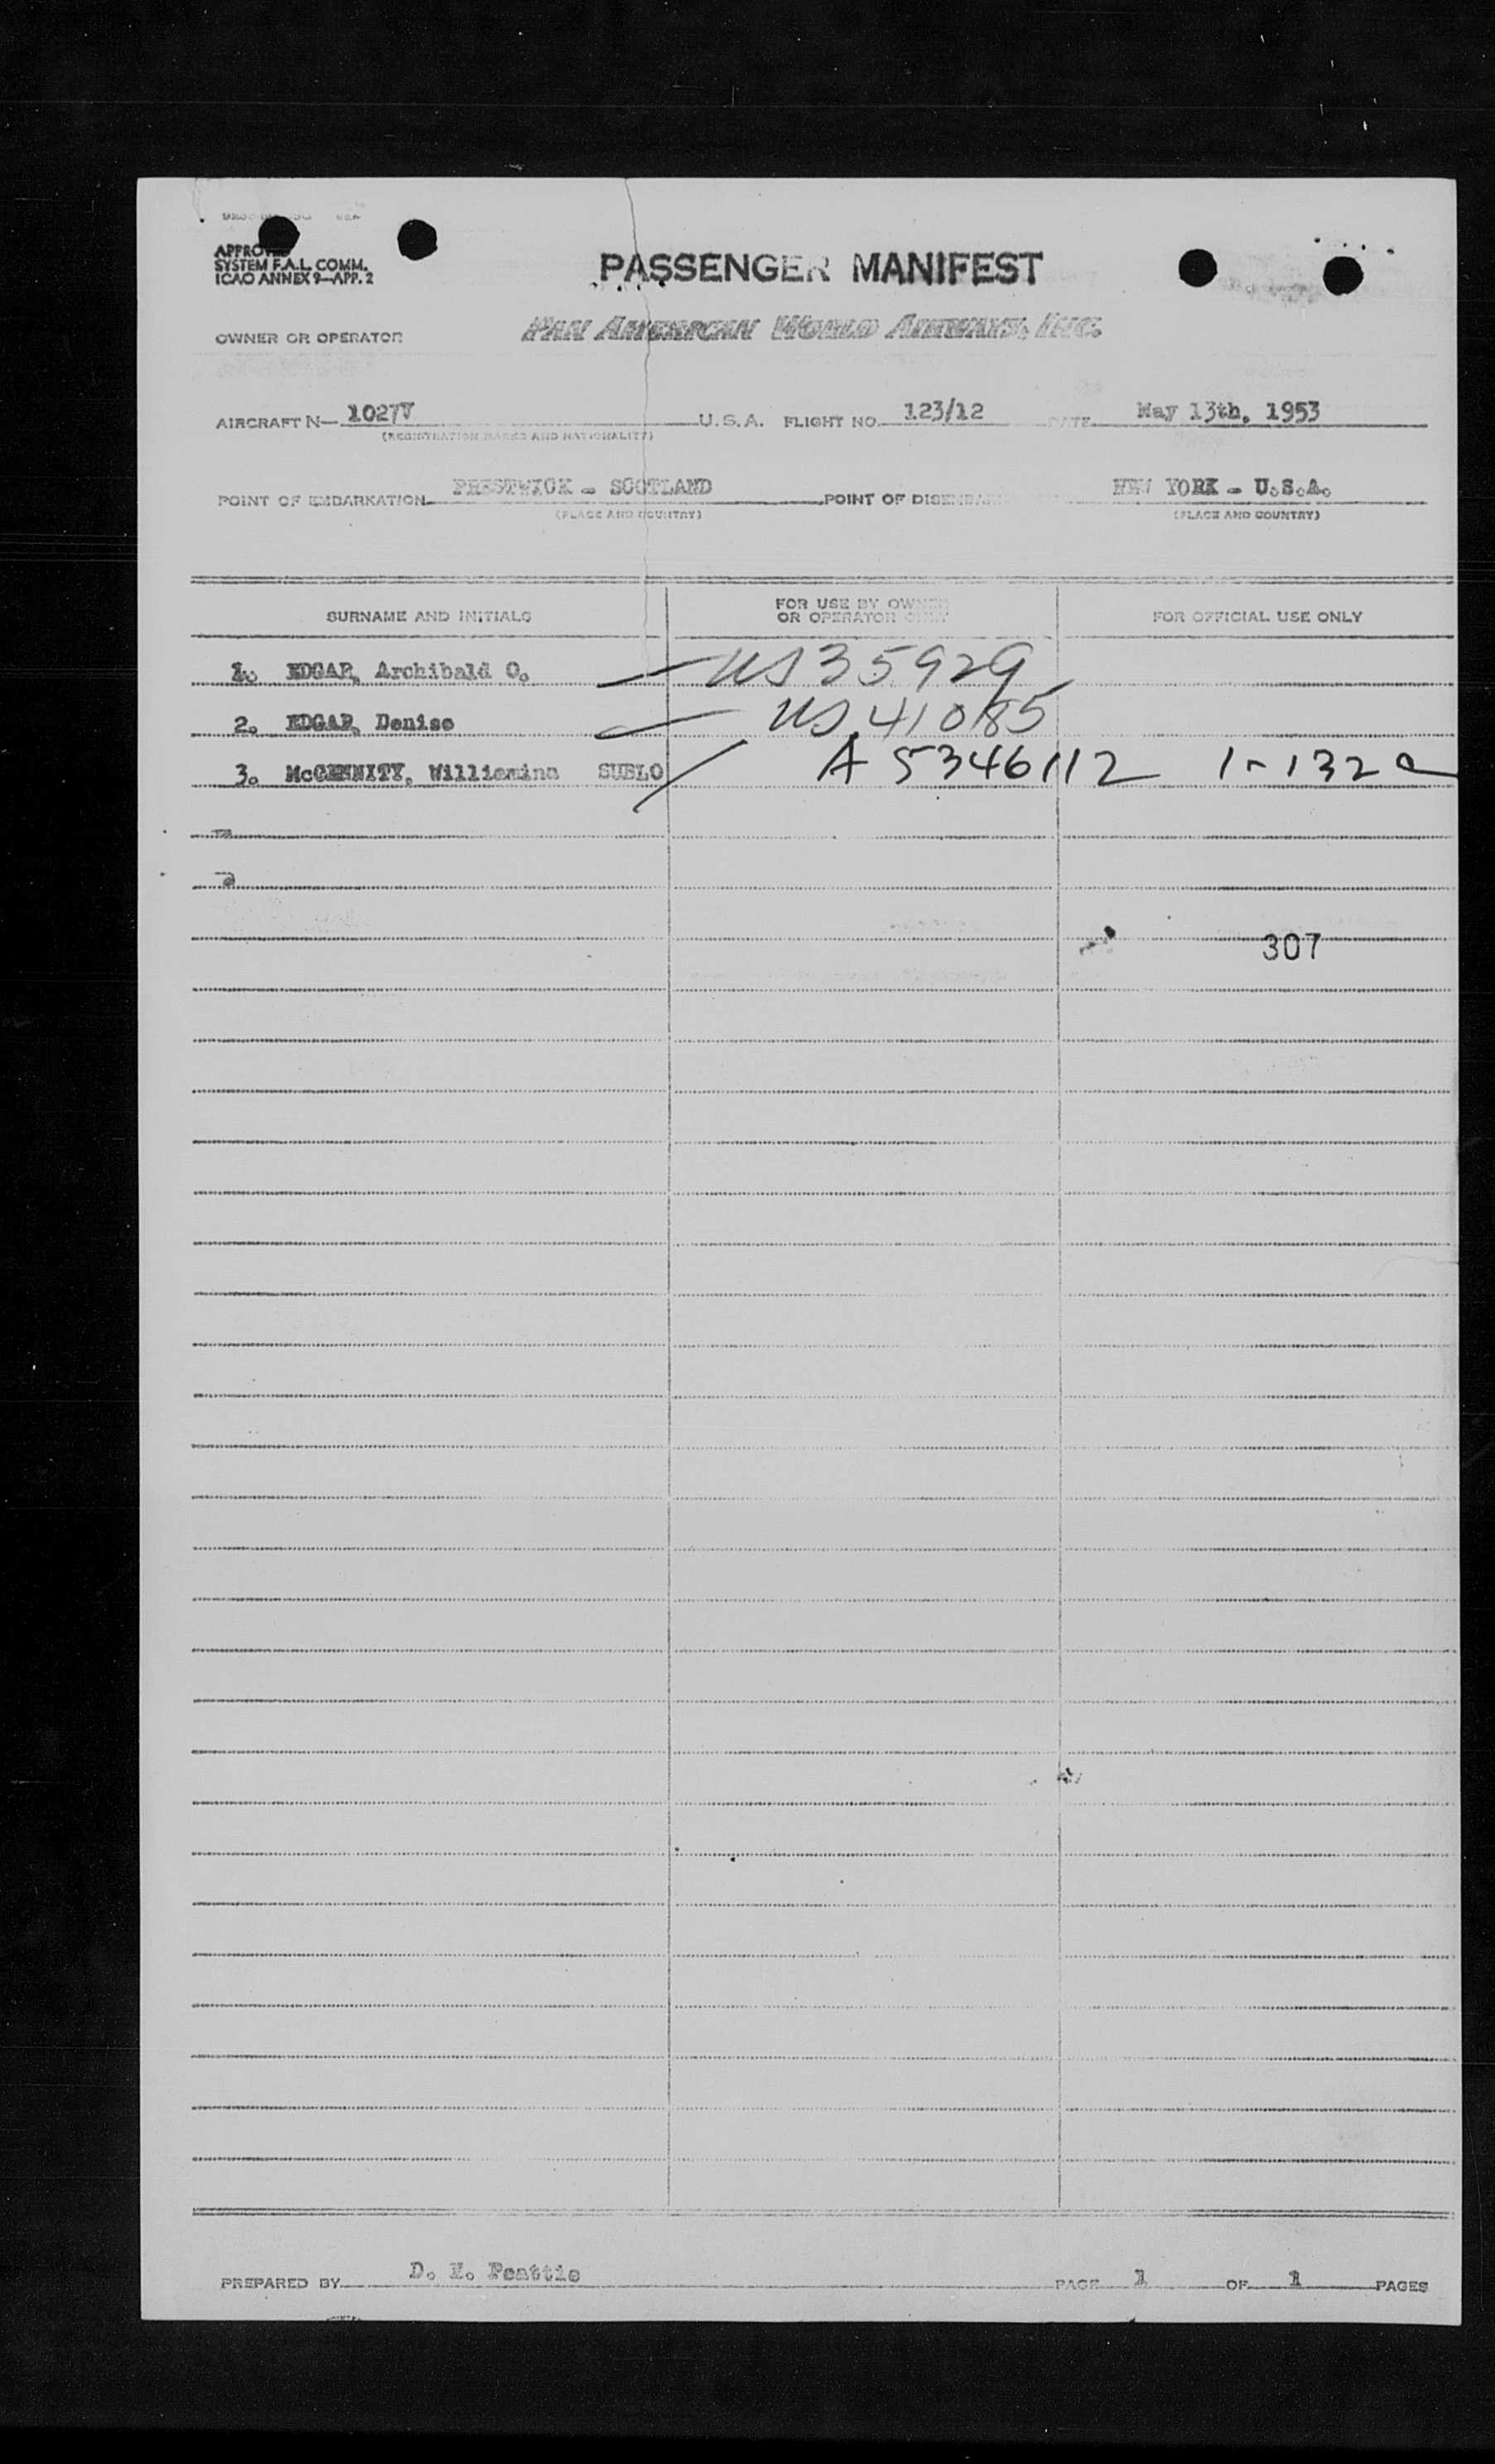 APPROVED
SYSTEM F.A.L. COMM.
ICAO ANNEX 9—APP. 2
PASSENGER MANIFEST
OWNER OR OPERATOR PAN AMERICAN WORLD AIRWAYS, INC.
AIRCRAFT N— 1027V U.S.A. FLIGHT NO. 123/12 DATE May 13th, 1953
(REGISTRATION MARKS AND NATIONALITY)
POINT OF EMBARKATION PRESTWICK - SCOTLAND POINT OF DISEMBARK NEW YORK - U.S.A.
(PLACE AND COUNTRY) (PLACE AND COUNTRY)
SURNAME AND INITIALS FOR USE BY OWNER OR OPERATOR ONLY FOR OFFICIAL USE ONLY
1. EDGAR, Archibald O. US 35929
2. EDGAR, Denise US 41085
3. McGENNITY, Williamina SUBLO A 5346112 1-132a
307
PREPARED BY D. Peattie PAGE 1 OF 1 PAGES